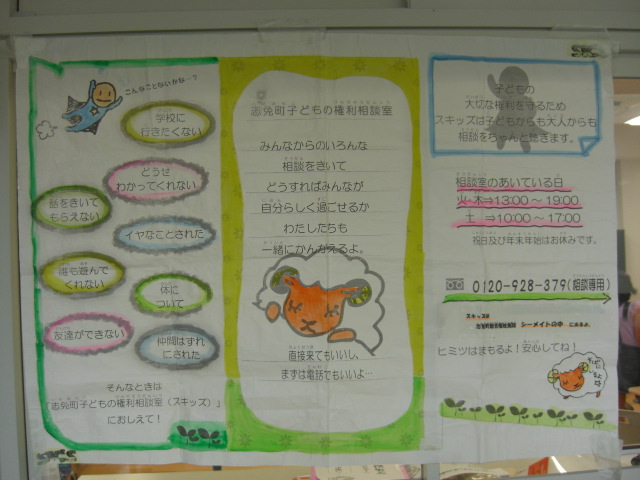 こんなことないかな…？
学校に
行きたくない
どうせ
わかってくれない
話をきいて
もらえない
イヤなことされた
誰も遊んで
くれない
体に
ついて
友達ができない
仲間はずれ
にされた
そんなときは
「志免町子どもの権利相談室（スキッズ）」
におしえて！
志免町子どもの権利相談室
みんなからのいろんな
相談をきいて
どうすればみんなが
自分らしく過ごせるか
わたしたちも
一緒にかんがえるよ。
直接来てもいいし、
まずは電話でもいいよ…
子どもの
大切な権利を守るため
スキッズは子どもからも大人からも
相談をちゃんと聴きます。
相談室のあいている日
火・木⇒13:00～19:00
土 ⇒10:00～17:00
祝日及び年末年始はお休みです。
0120-928-379（相談専用）
スキッズは
シーメイトの中 にあるよ。
ヒミツはまもるよ！安心してね！